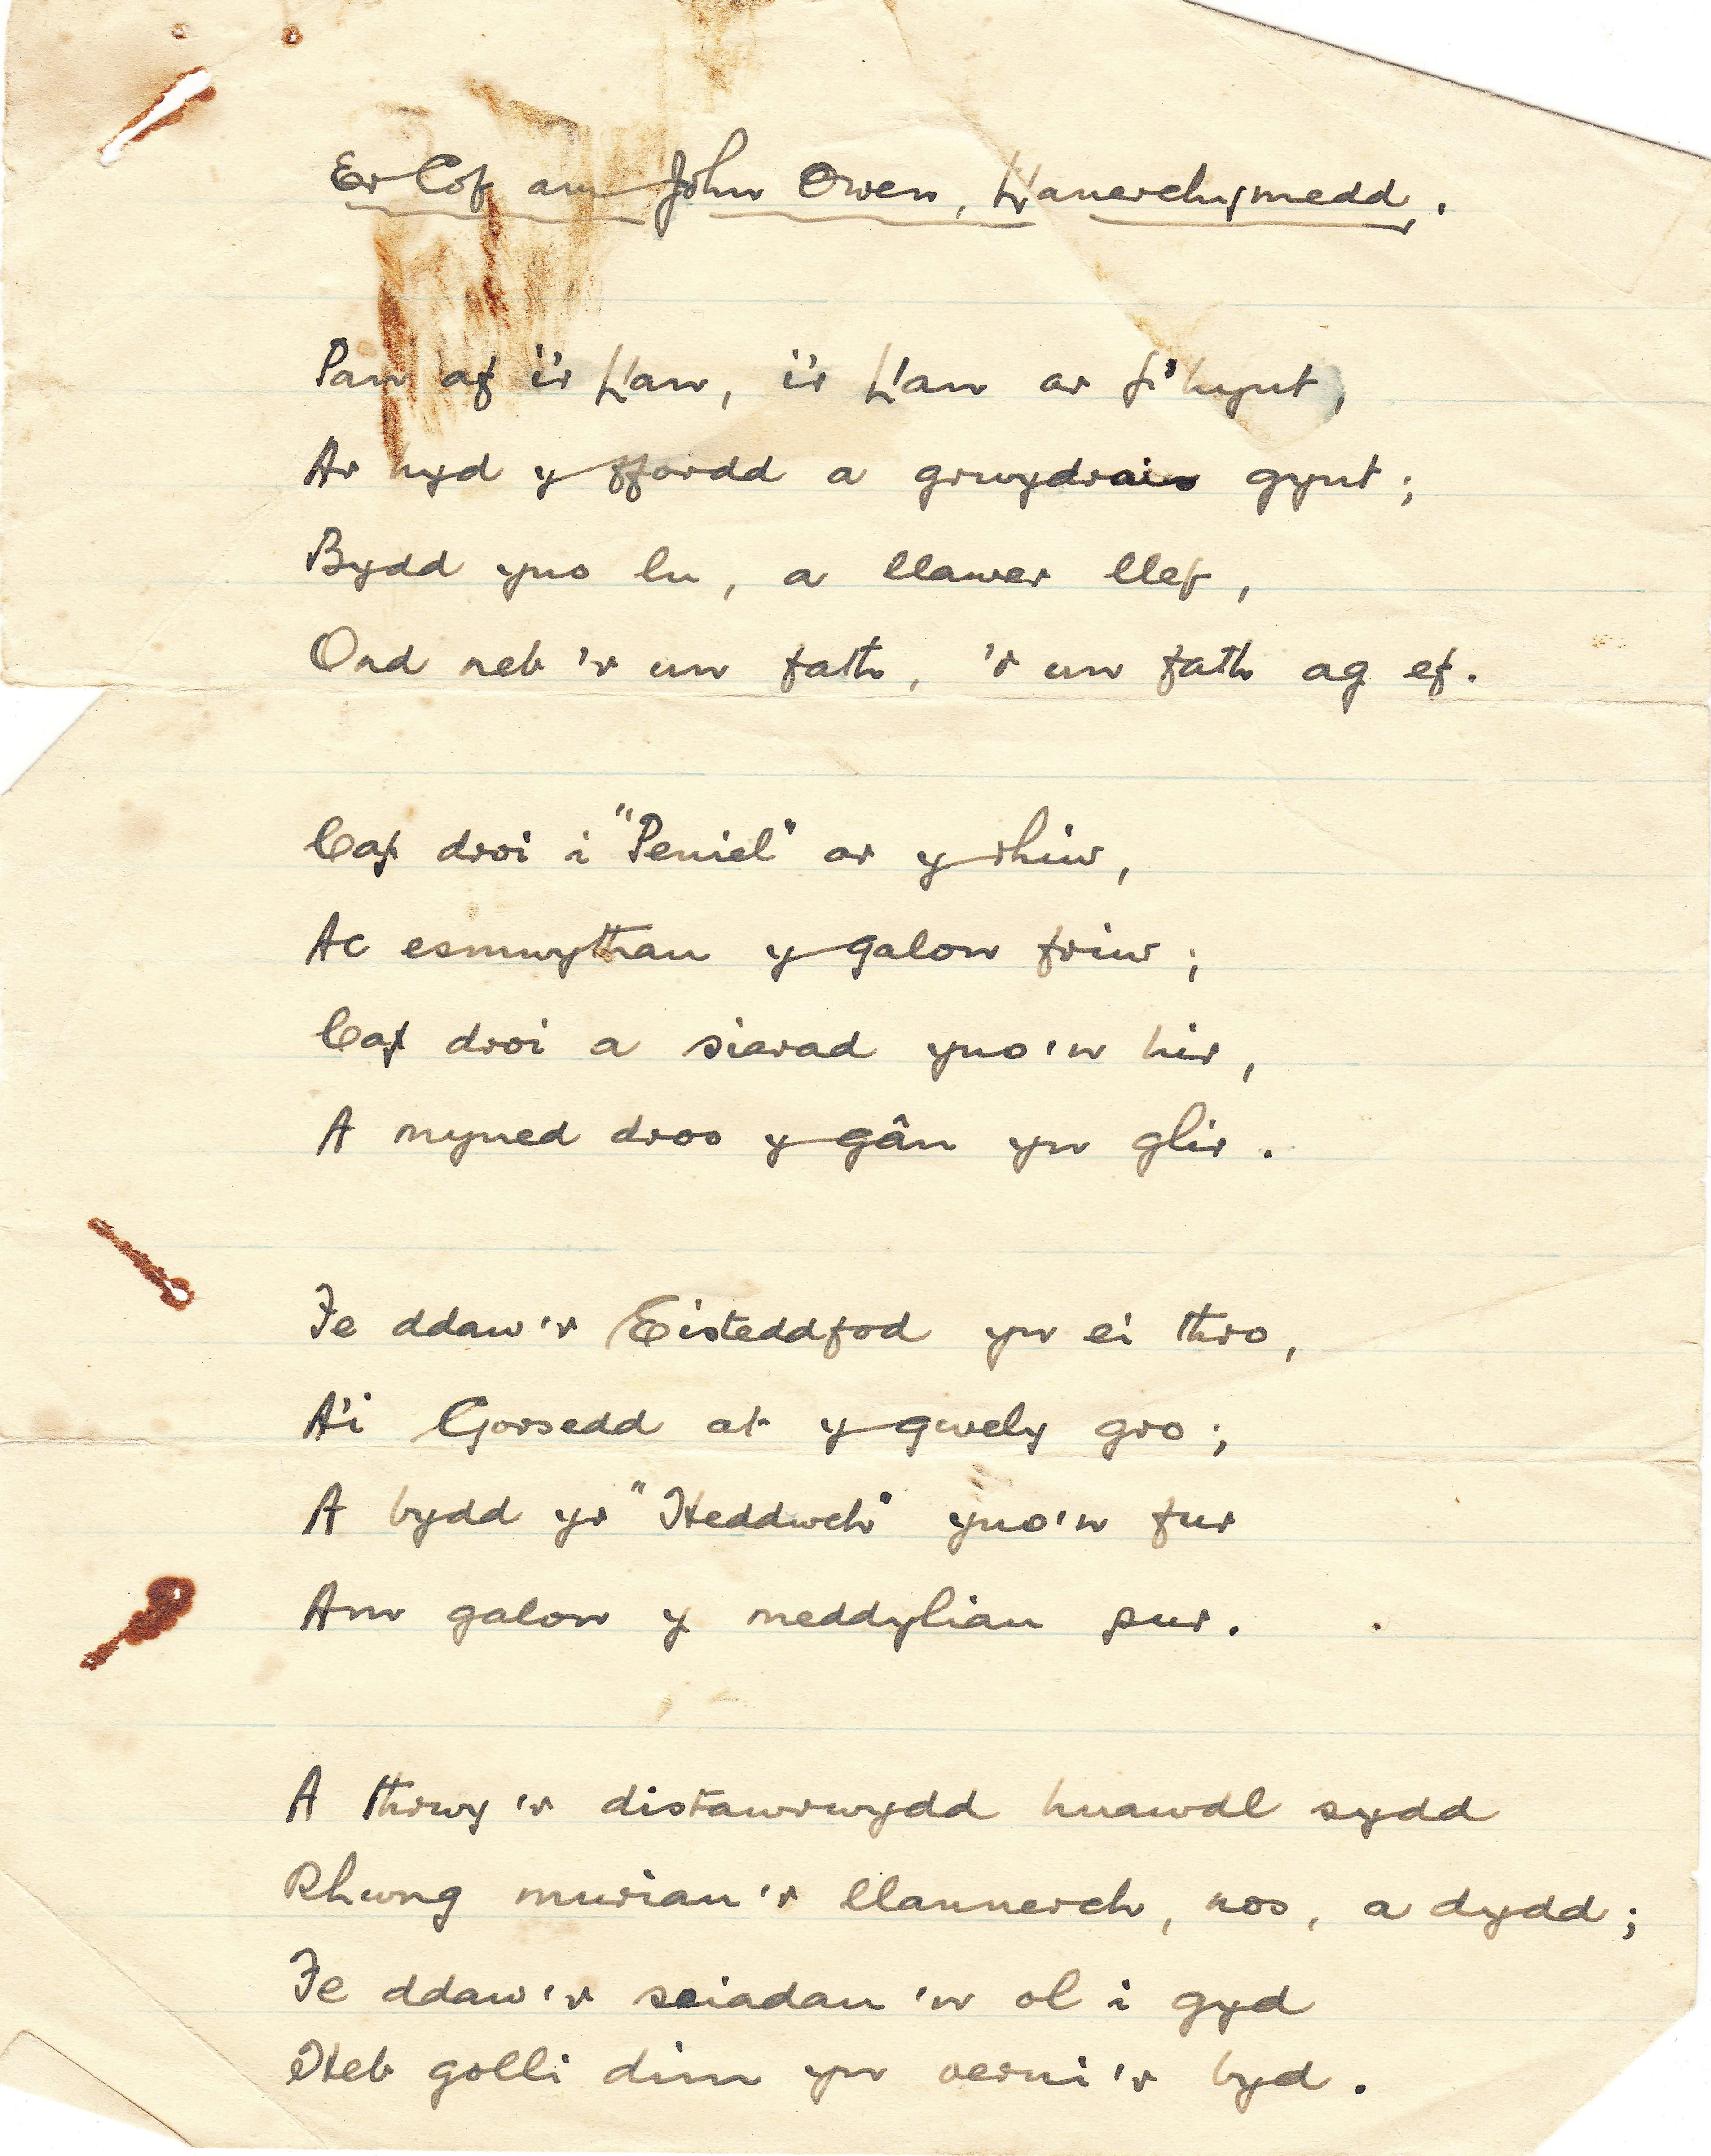 Er Cof am John Owen, Llanerchymedd.
Pan af i'r Llan, i'r Llan ar f'hynt,
Ar hyd y ffordd a grwydrais gynt;
Bydd yno lu, a llawer llef,
Ond neb 'r un fath, 'r un fath ag ef.
Caf droi i "Peniel" ar y rhiw,
Ac esmwythau y galon friw;
Caf droi a siarad yno'n hir,
A myned dros y gân yn glir.
Fe ddaw'r Eisteddfod yn ei thro,
A'i Gorsedd at y gwely gro;
A bydd yr "Heddwch" yno'n fur
Am galon y meddyliau pur.
A thrwy'r distawrwydd huawdl sydd
Rhwng muriau'r llannerch, nos, a dydd;
Fe ddaw'r seiadau'n ol i gyd
Heb golli dim yn oerni'r byd.